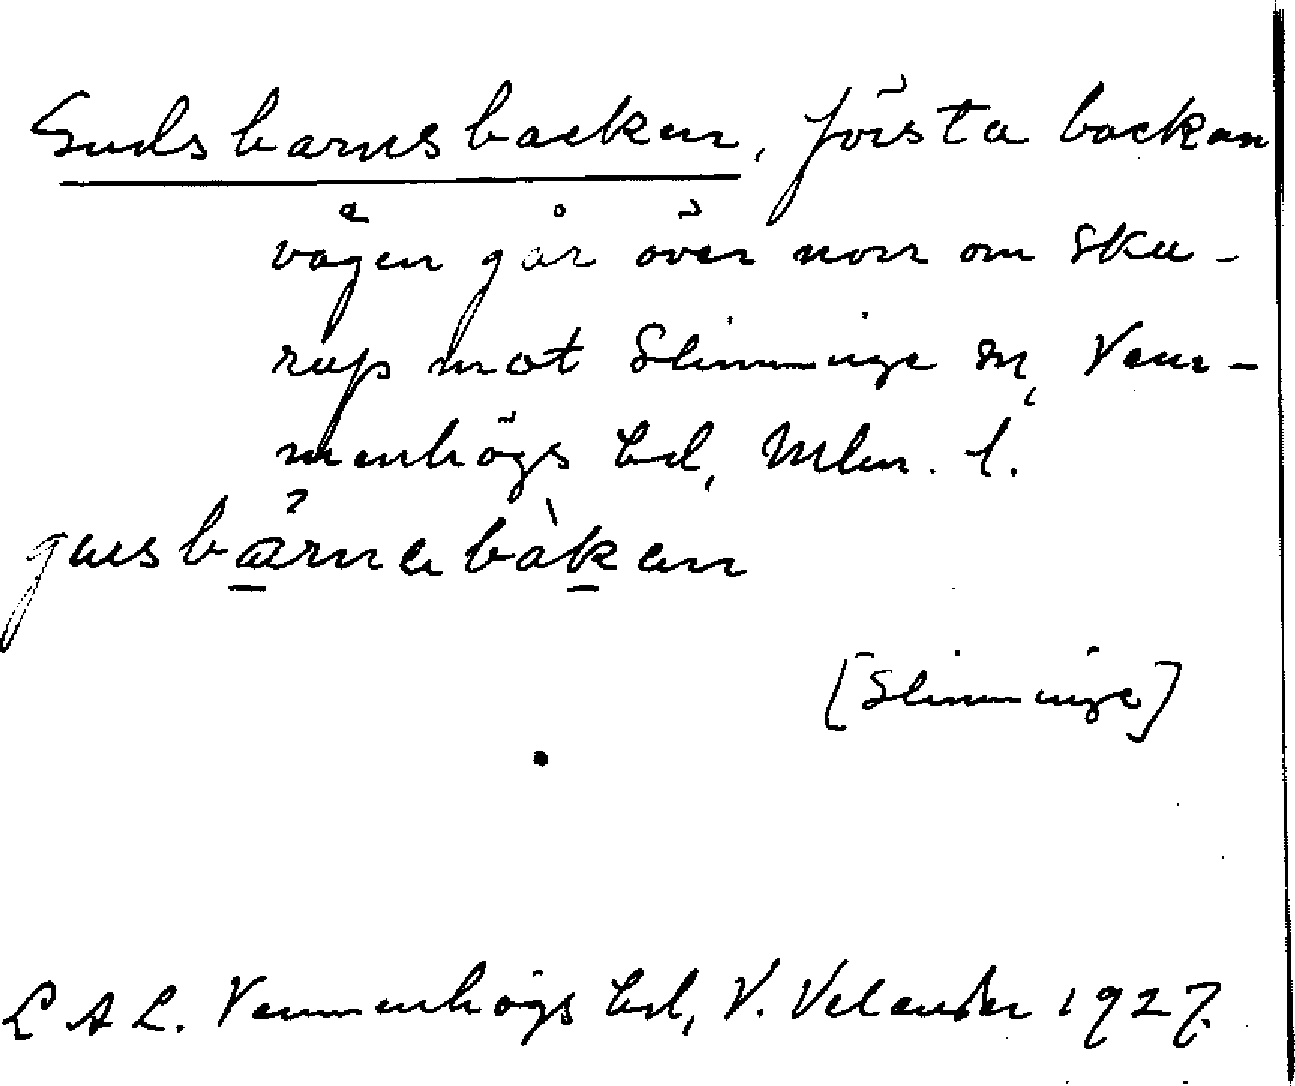 Gudsbarnsbacken, första backen
vägen går över norr om Sku-
rup mot Slimminge sn, Vem-
menhögs hd, Mlm. l.
gusbårnabàkan
[Slimminge]
L A L. Vemmenhögs hd, V. Velander 1927.